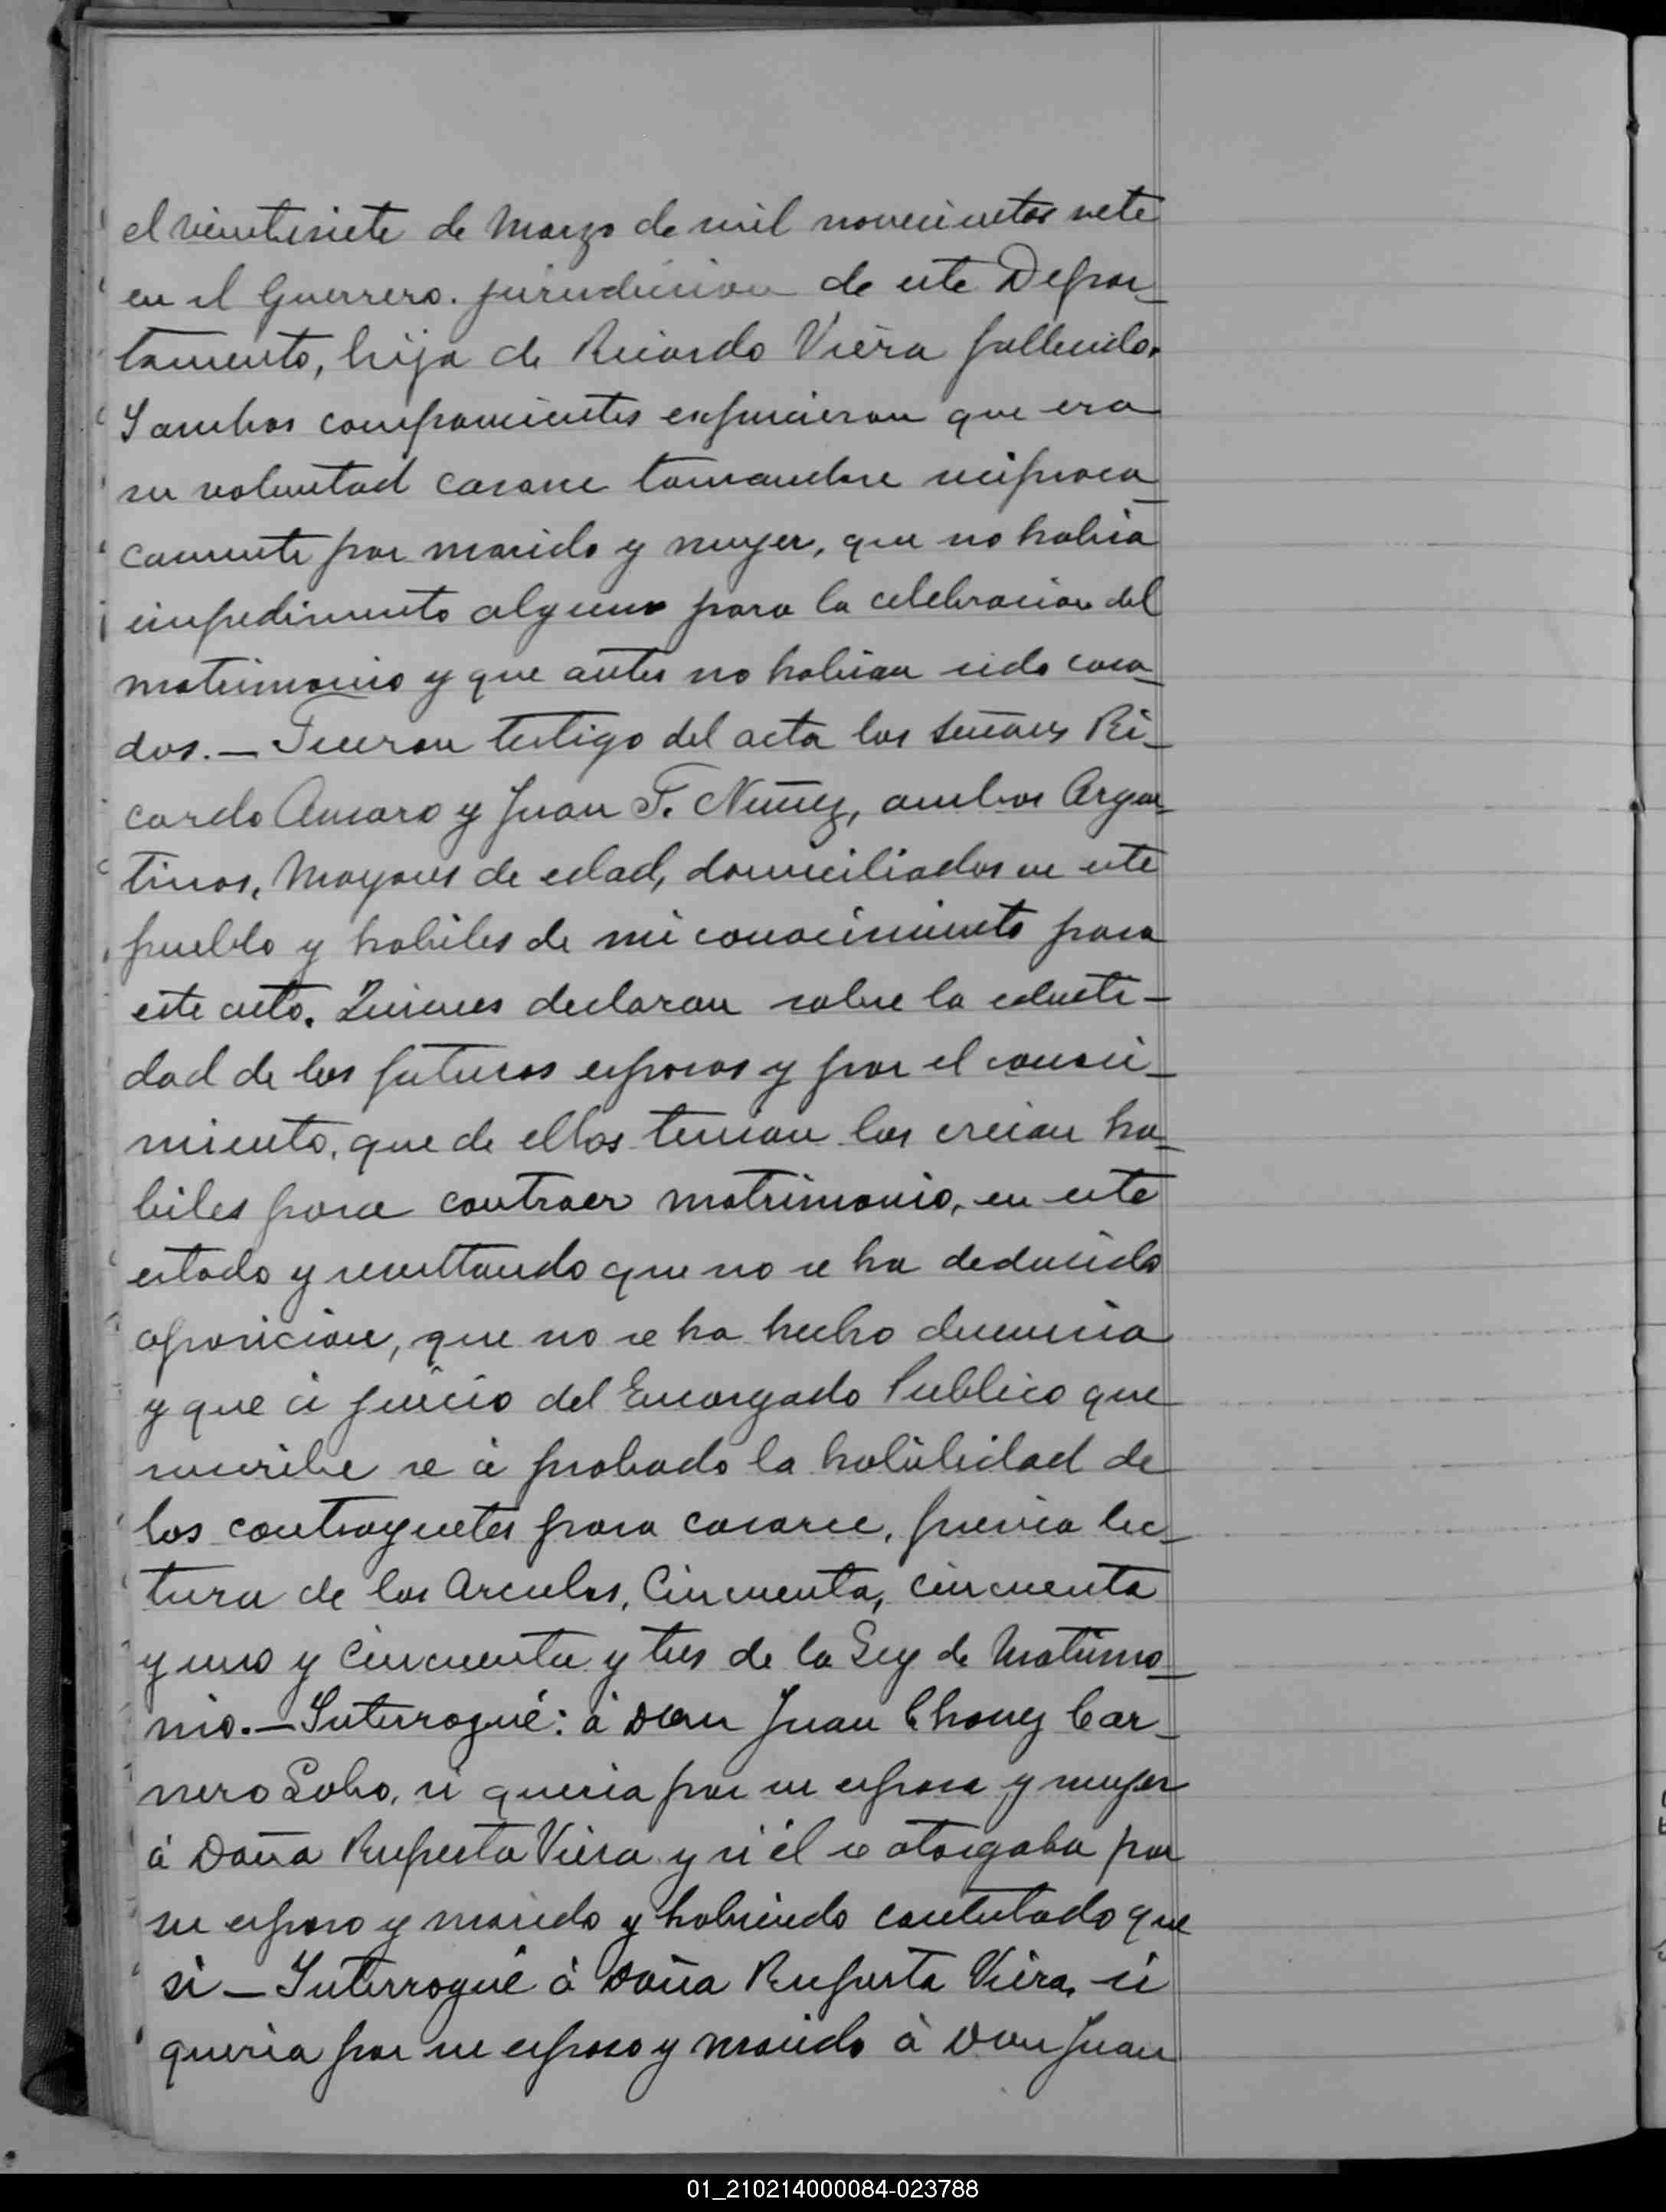 el veintisiete de Marzo de mil novecientos siete
en el Guerrero. jurisdiccion de este Depar_
tamento, hija de Ricardo Viera fallecido.
Y ambos comparecientes expucieron que era
su voluntad casarse tomandose reciproca_
camente por marido y mujer, que no habia
impedimento alguno para la celebracion del
matrimonio y que antes no habian sido casa_
dos. — Fueron testigo del acta los señores Ri_
cardo Amaro y Juan F. Nuñez, ambos Argen_
tinos, Mayores de edad, domiciliados en este
pueblo y habiles de mi conocimiento para
este acto. Quienes declaran sobre la identi—
dad de los futuros esposos y por el conoci_
miento, que de ellos tenian los creian ha_
biles para contraer matrimonio, en este
estado y resultando que no se ha deducido
oposicion, que no se ha hecho denuncia
y que á juicio del Encargado Publico que
suscribe se á probado la habilidad de
los contrayentes para casarce, previa lec_
tura de los Arculos, Cincuenta, cincuenta
y uno y Cincuenta y tres de la Ley de Matrimo_
nio. — Interrogué: á Don Juan Chouy Car_
nero Lobo, si queria por su esposa y mujer
á Doña Ruperta Viera y si él se otorgaba por
su esposo y marido y habiendo contestado que
si — Interrogué á Doña Ruperta Viera, si
queria por su esposo y marido á Don Juan
01_210214000084-023788